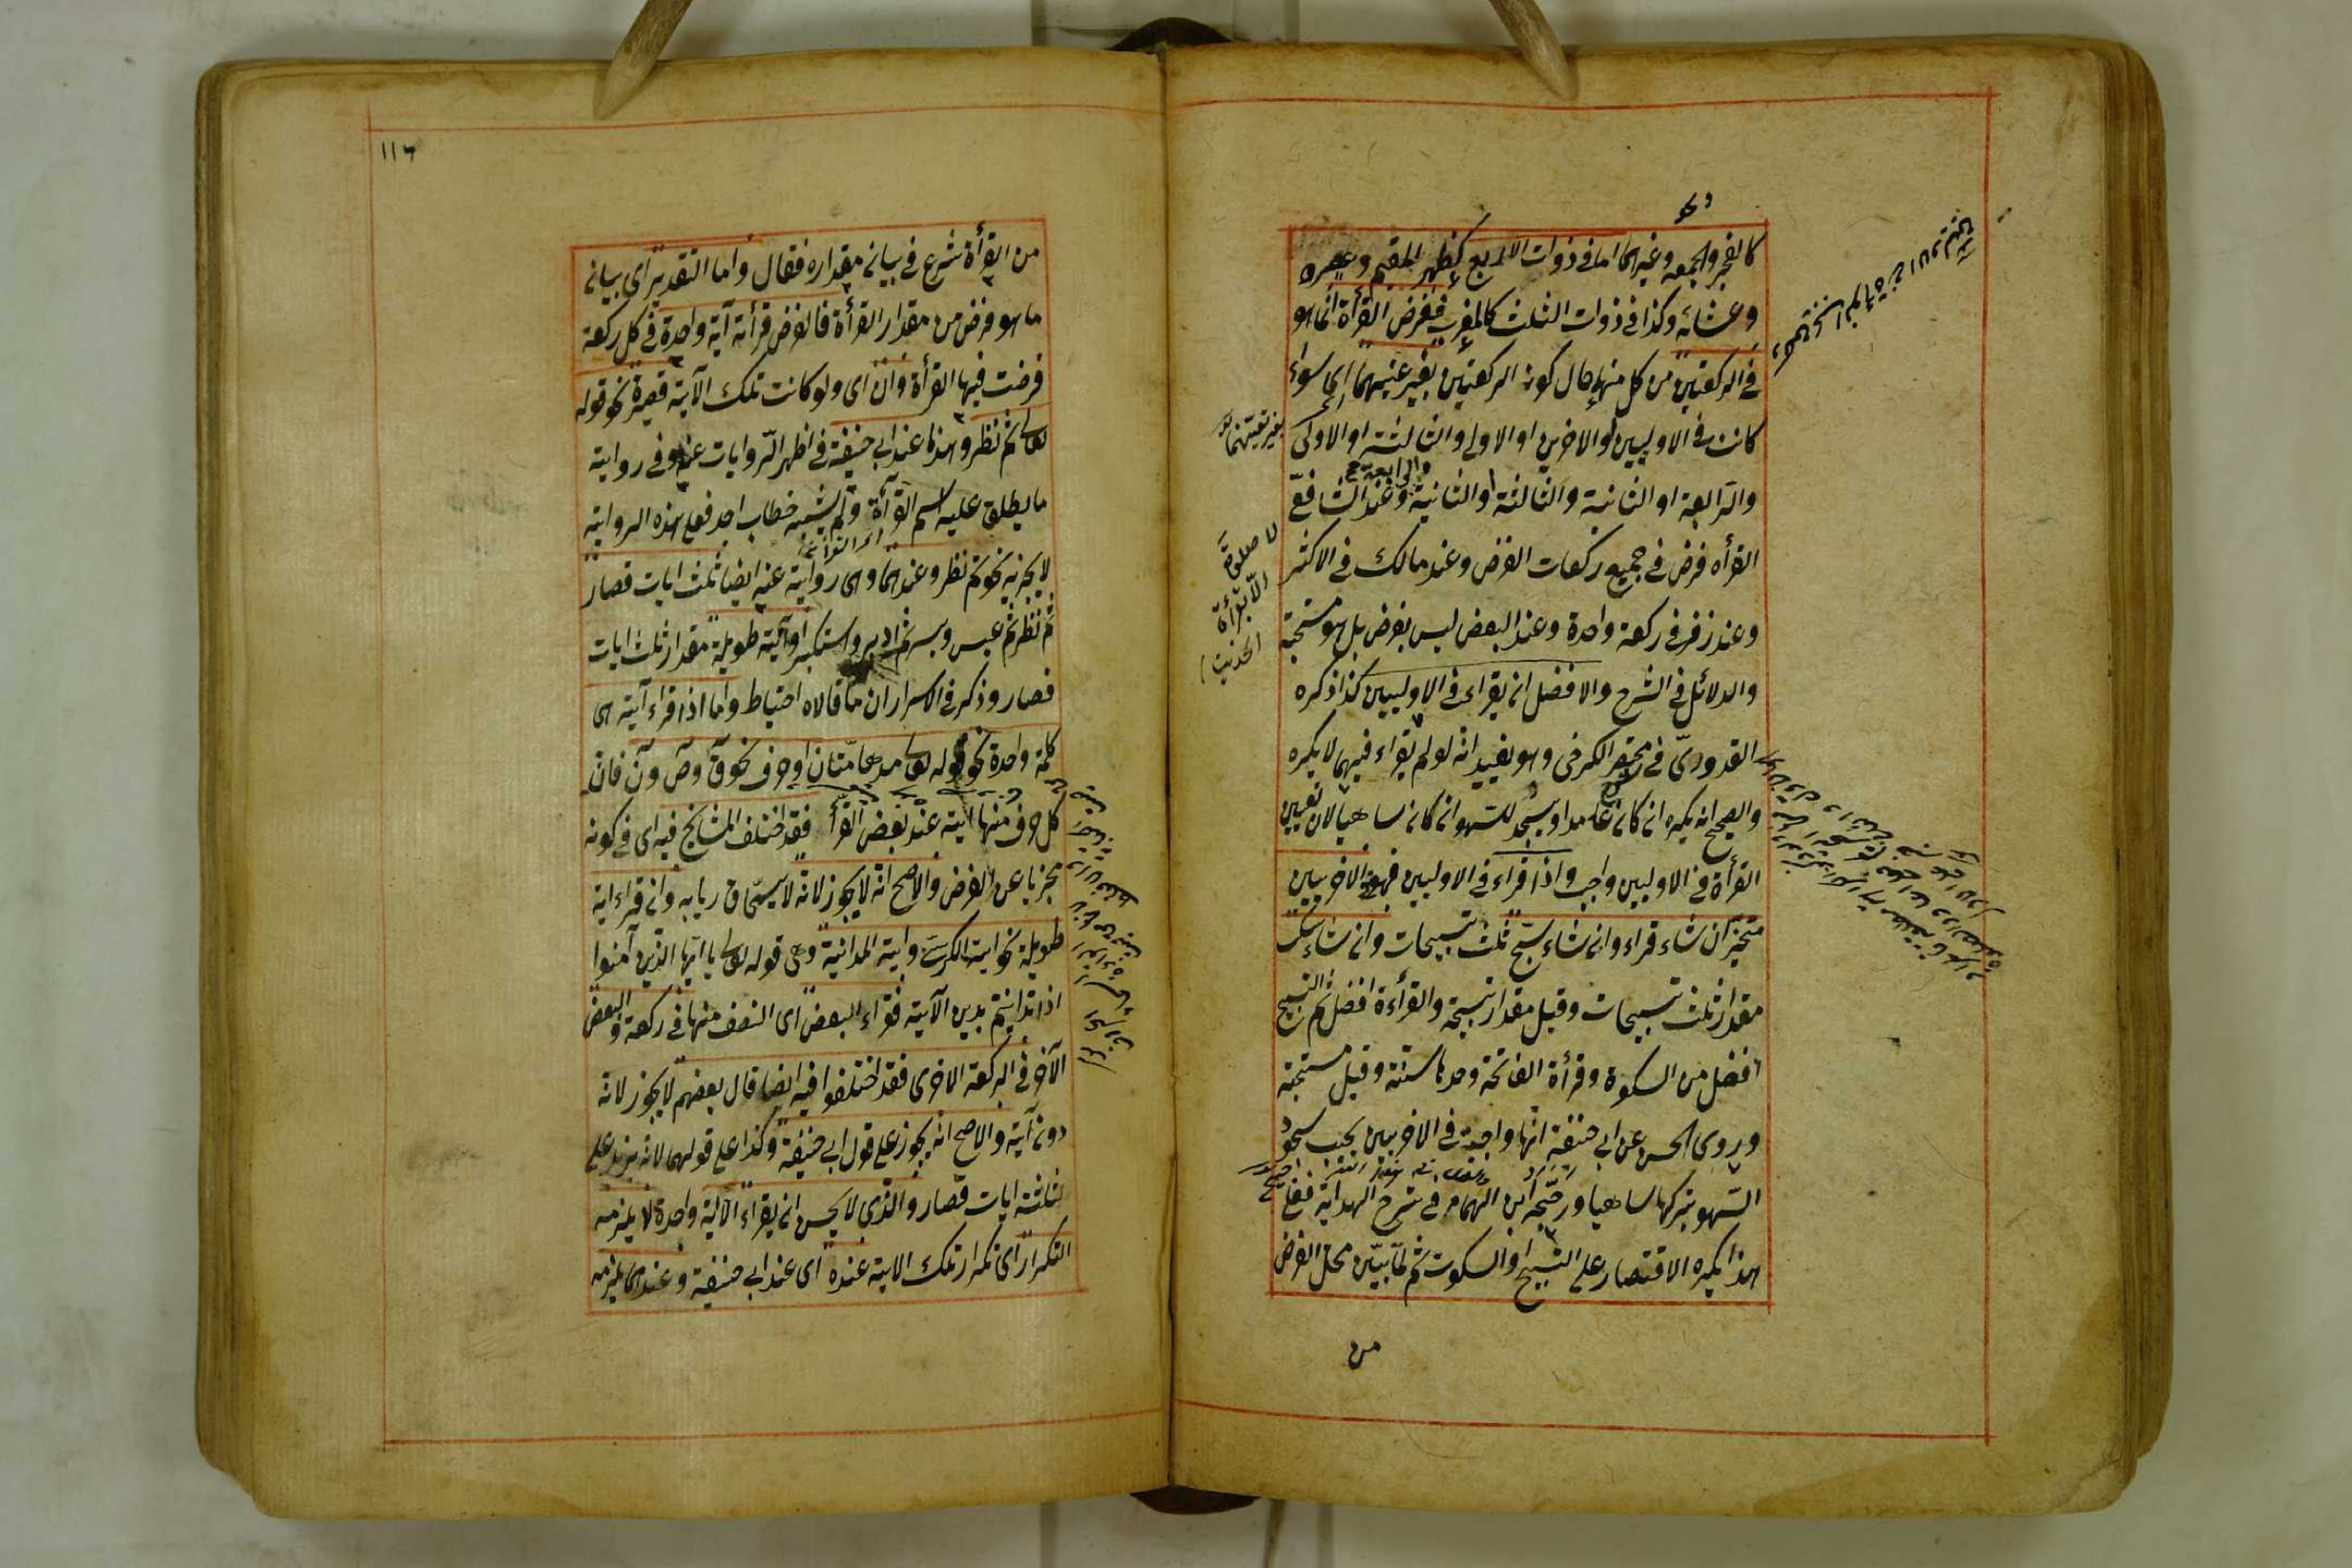 كالفجر والجمعة وغيرهما اما في ذوات الاربع كظهر المقيم وعصره
وعشائه وكذا في ذوات الثلث كالمغرب ففرض القرأة انما هو
في الركعتين من كل منها حال كون الركعتين بغير عينهما اى سواء
كانت في الاوليين او الاخريين او الاولى والثالثة او الاولى
والرابعة او الثانية والثالثة او الثانية والرابعة وعند الشافعى
القرأة فرض في جميع ركعات الفرض وعند مالك في الاكثر
وعند زفر في ركعة واحدة وعند البعض ليس بفرض بل هو مستحبة
والدلائل في الشرح والافضل ان يقراء في الاوليين كذا ذكره
القدورىّ في مختصر الكرخى وهو يفيد انه لو لم يقراء فيهما لا يكره
والصحيح انه يكره ان كان عامدا ويسجد للسهو ان كان ساهيا لان تعيين
القرأة في الاوليين واجب واذا قراء في الاوليين فهو في الاخريين
مخيّر ان شاء قراء وان شاء سبّح ثلث تسبيحات وان شاء سكت
مقدار ثلث تسبيحات وقيل مقدار تسبيحة والقرأءة افضل ثم التسبيح
افضل من السكوة وقرأة الفاتحة وحدها سنة وقيل مستحبة
وروى الحسن عن ابي حنيفة انّها واجبة في الاخريين يجب سجود
السّهو بتركها ساهيا ورجّحه ابن الهمام في شرح الهداية فعلى
هذا يكره الاقتصار على التسبيح او السكوت ثم لمّا بيّن محل الفرض
من
لا صلوة
الّا بقرأة
الحديث
١١٦
من القرأة شرع في بيان مقداره فقال واما التقدير اى بيان
ما هو فرض من مقدار القرأة فالفرض قرأة آية واحدة في كل ركعة
فرضت فيها القرأة وان اى ولو كانت تلك الآية قصيرة نحو قوله
تعالى ثم نظر وهذا عند ابي حنيفة في اظهر الرّوايات عنه وفي رواية
ما يطلق عليه اسم القرآءة ولم يشبه خطاب احد فعلى هذه الرواية
لا يجزيه نحو ثم نظر وعندهما وهى رواية عنه ايضا ثلث ايات قصار
ثم نظر ثم عبس وبسر ثم ادبر واستكبر او آية طويلة مقدار ثلث ايات
قصار وذكر في الاسرار ان ما قالاه احتياط واما اذا قراء آية هى
كلمة واحدة نحو قوله تعالى مدهامّتان او حرف نحو ق وص ون فان
كل حرف منها آية عند بعض القرّأ فقد اختلف المشايخ فيه اى في كونه
مجزيا عن الفرض والاصح انه لا يجوز لانه لا يسمّى قاريا به وان قراء اية
طويلة نحو اية الكرسى واية المداينة وهى قوله تعالى يا ايّها الذين آمنوا
اذا تداينتم بدين الآية فقراء البعض اى النصف منها في ركعة والبعض
الآخر في الركعة الاخرى فقد اختلفوا فيه ايضا قال بعضهم لا يجوز لانه
دون آية والاصح انه يجوز على قول ابي حنيفة وكذا على قولهما لانه يزيد على
ثلثة ايات قصار والذى لا يحسن ان يقراء الّا اية واحدة لا يلزمه
التكرار اى تكرار تلك الاية عنده اى عند ابي حنيفة وعندهما يلزمه